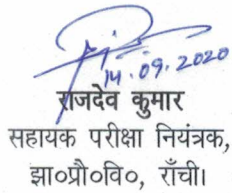 14.09.2020
राजदेव कुमार
सहायक परीक्षा नियंत्रक,
झा०प्रौ०वि०, राँची।